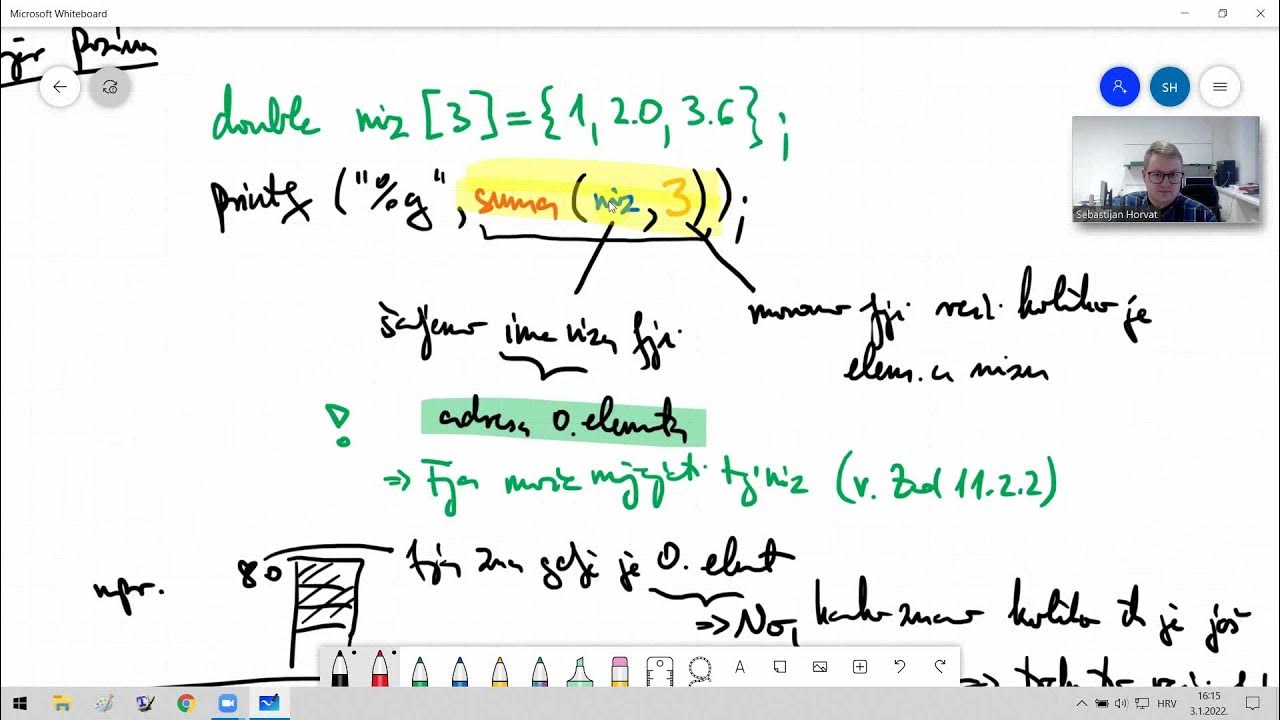 Microsoft Whiteboard
poziva
double niz [3] = {1, 2.0, 3.6};
printf ("%g", suma (niz, 3));
SH
Sebastijan Horvat
šaljemo ime niza fji
moramo fji reći koliko je
elem. u nizu
adresa 0. elementa
!
=> Fja može mijenjati taj niz (v. Zad 11.2.2)
80
fja zna gdje je 0. element
npr.
=> No, kako znamo koliko ih je još
=>
A
HRV
16:15
3.1.2022.